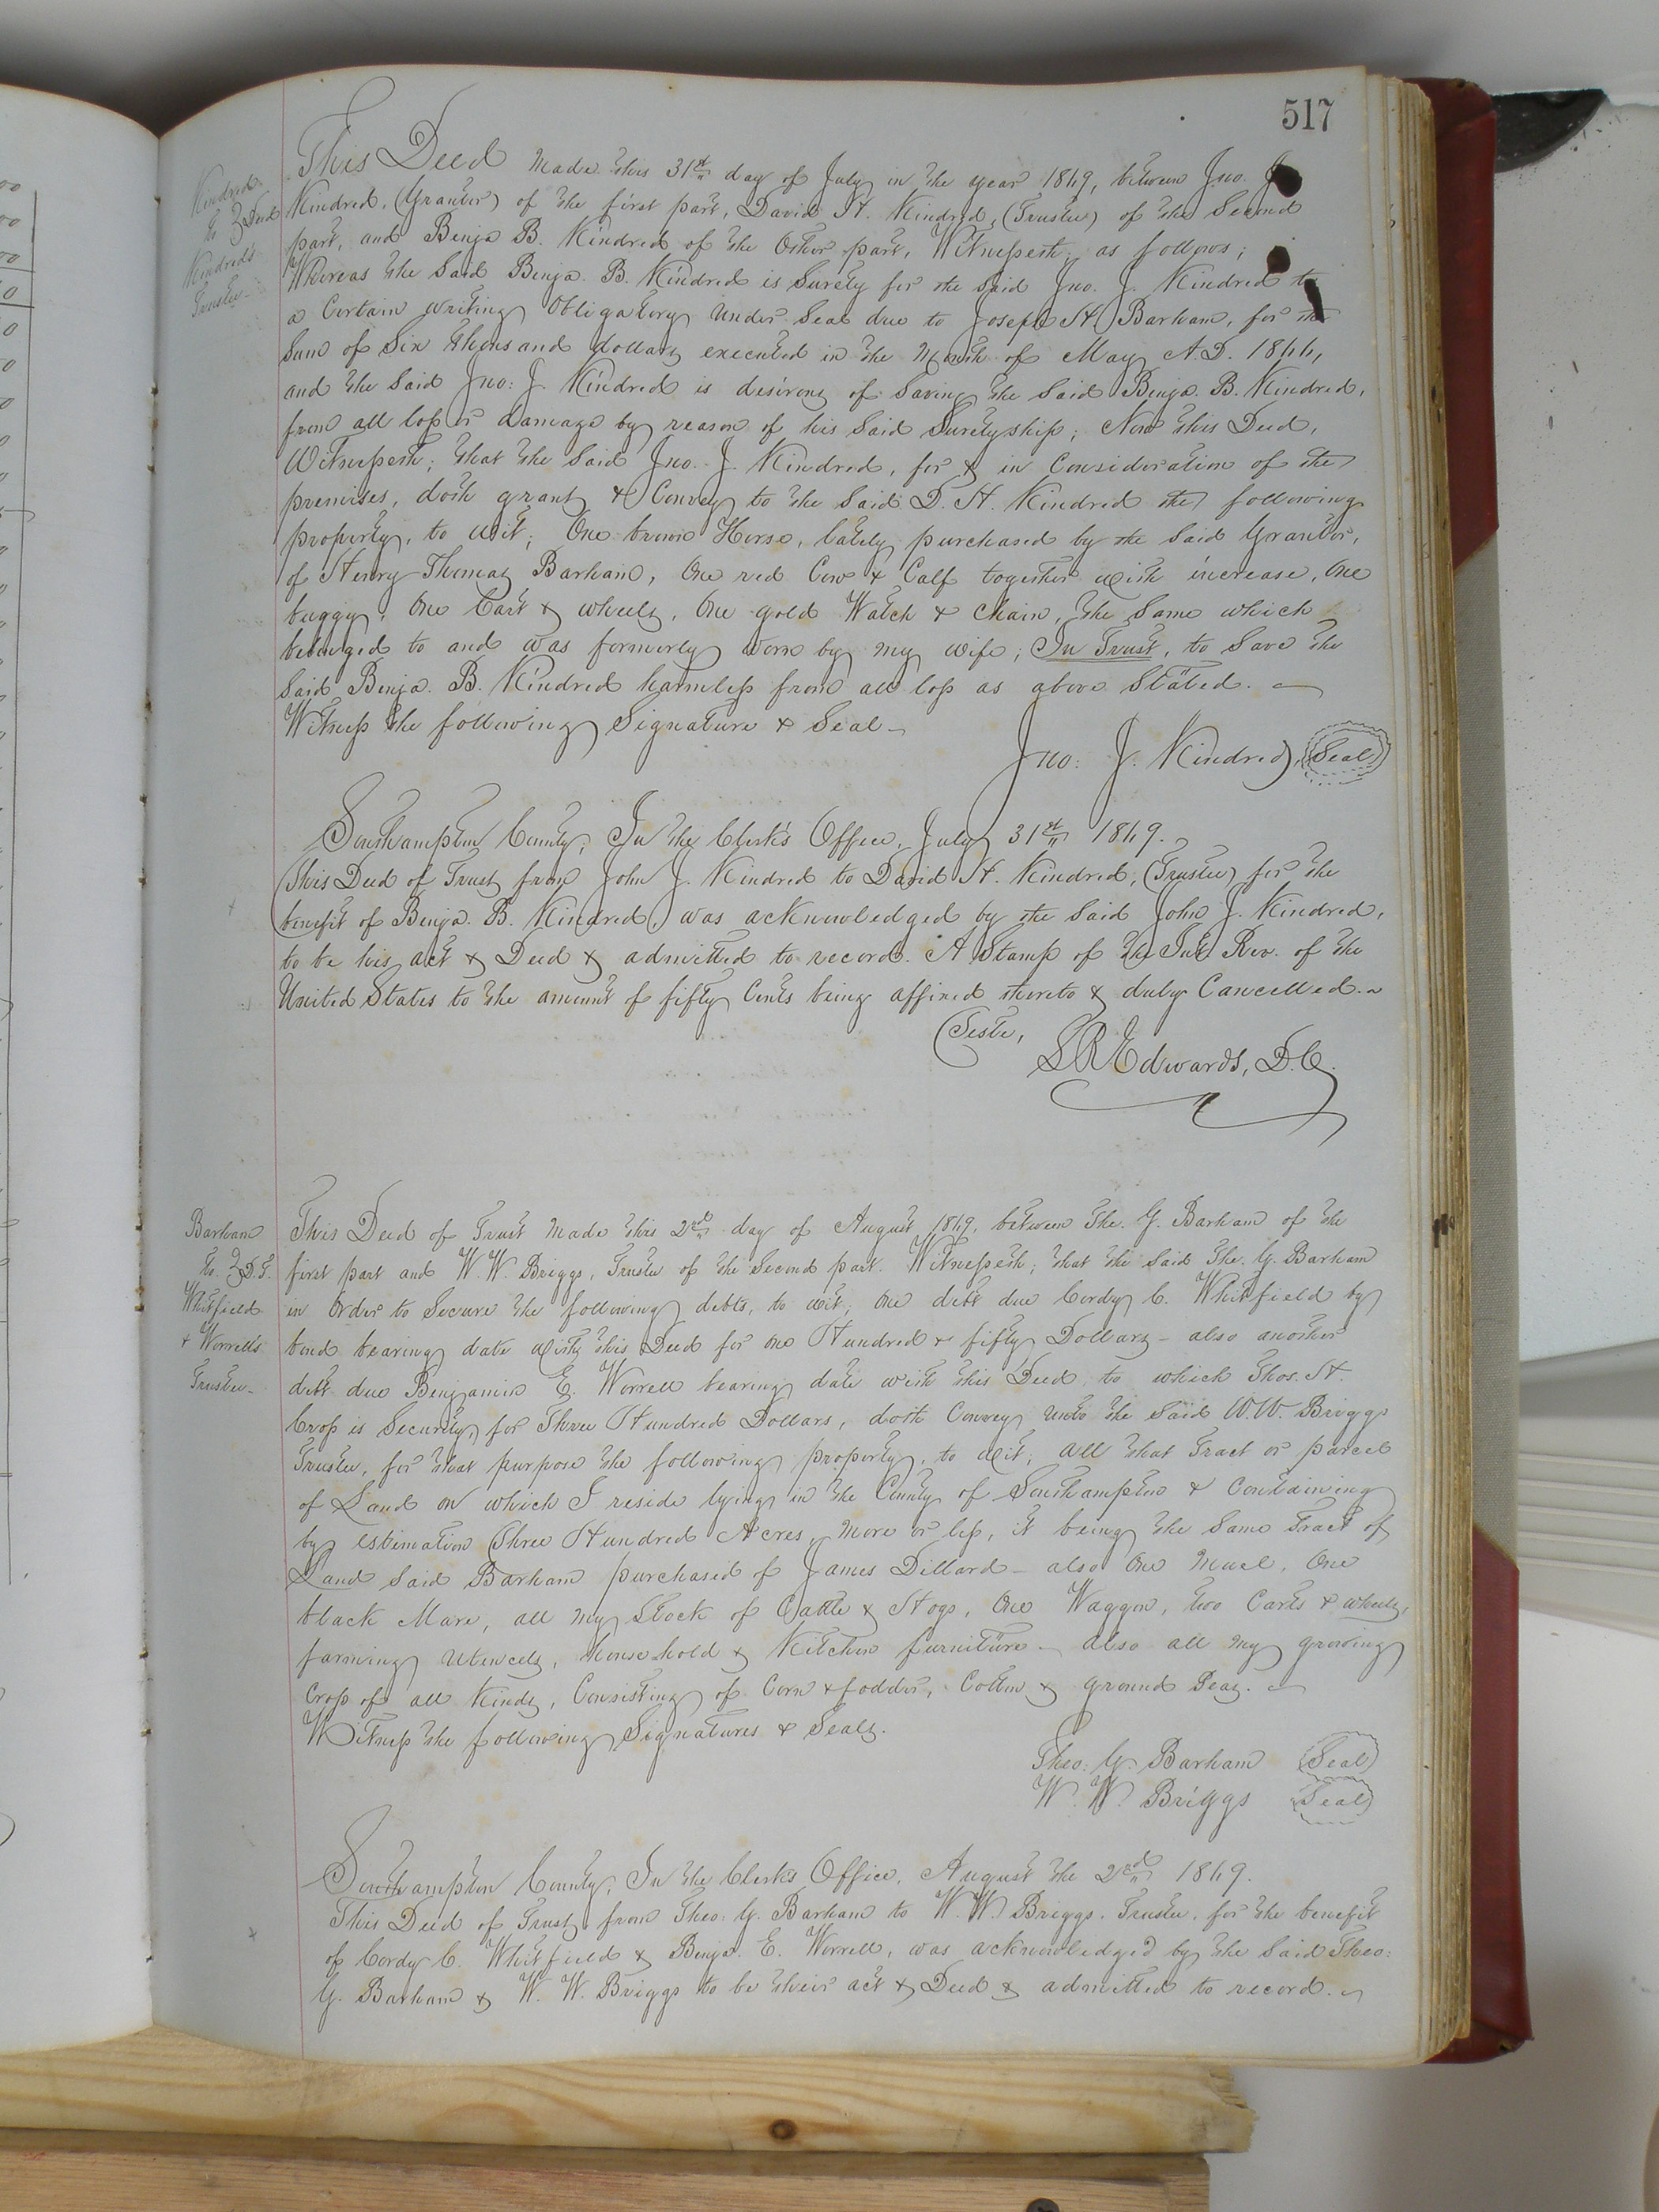 517
Kindred
to } Deed
Kindred's
Trustee
This Deed made this 31st day of July in the year 1869, between Jno. J.
Kindred, (Grantor) of the first part, David H. Kindred, (Trustee) of the Second
part, and Benja B. Kindred of the Other part, Witnesseth; as follows;
Whereas the Said Benja. B. Kindred is Surety for the Said Jno. J. Kindred to
a Certain writing Obligatory under Seal due to Joseph H Barham, for the
Sum of Six thousand dollars executed in the Month of May A.D. 1866,
and the Said Jno: J. Kindred is desirous of Saving the Said Benja. B. Kindred,
from all loss or damage by reason of his Said Suretyship; Now this Deed,
Witnesseth; that the Said Jno. J. Kindred, for & in Consideration of the
premises, doth grant & Convey to the Said D. H. Kindred the following
property, to wit; One brown Horse, lately purchased by the Said Grantor,
of Henry Thomas Barham, One red Cow & Calf together with increase, One
buggy, One Cart & wheels, One gold Watch & Chain, the Same which
belonged to and was formerly worn by my wife; In Trust, to Save the
Said Benja. B. Kindred harmless from all loss as above Stated.
Witness the following Signature & Seal
Jno: J. Kindred, Seal
Southampton County; In the Clerk's Office, July 31st 1869.
This Deed of Trust from John J. Kindred to David H. Kindred, (Trustee) for the
benefit of Benja. B. Kindred, was acknowledged by the Said John J. Kindred,
to be his act & Deed & admitted to record. A Stamp of the Int. Rev. of the
United States to the amount of fifty Cents being affixed thereto & duly Cancelled.
Teste,
L R Edwards, D.C.
Barham
to } D.T.
Whitfield
& Worrell's
Trustee
This Deed of Trust made this 2nd day of August 1869, between The. G. Barham of the
first part and W. W. Briggs, Trustee of the Second part. Witnesseth; that the Said The. G. Barham
in Order to Secure the following debts, to wit; One debt due Cordy C. Whitfield by
bond bearing date with this Deed for one Hundred & fifty Dollars - also another
debt due Benjamin E. Worrell bearing date with this Deed, to which Thos. H.
Crop is Security, for Three Hundred Dollars, doth Convey unto the Said W.W. Briggs
Trustee, for that purpose the following property, to wit; all that Tract or parcel
of Land on which I reside lying in the County of Southampton & Containing
by estimation Three Hundred Acres, more or less, it being the Same Tract of
Land Said Barham purchased of James Dillard - also One Muel, One
black Mare, all my Stock of Cattle & Hogs, One Waggon, two Carts & wheels,
farming Utencels, household & Kitchen furniture - also all my growing
Crop of all Kinds, Consisting of Corn & fodder, Cotton & ground Peas.
Witness the following Signatures & Seals.
Theo. G. Barham Seal
W. W. Briggs Seal
Southampton County, In the Clerk's Office, August the 2nd 1869.
This Deed of Trust from Theo: G. Barham to W. W. Briggs, Trustee, for the benefit
of Cordy C. Whitfield & Benja. E. Worrell, was acknowledged by the Said Theo:
G. Barham & W. W. Briggs to be their act & Deed & admitted to record.